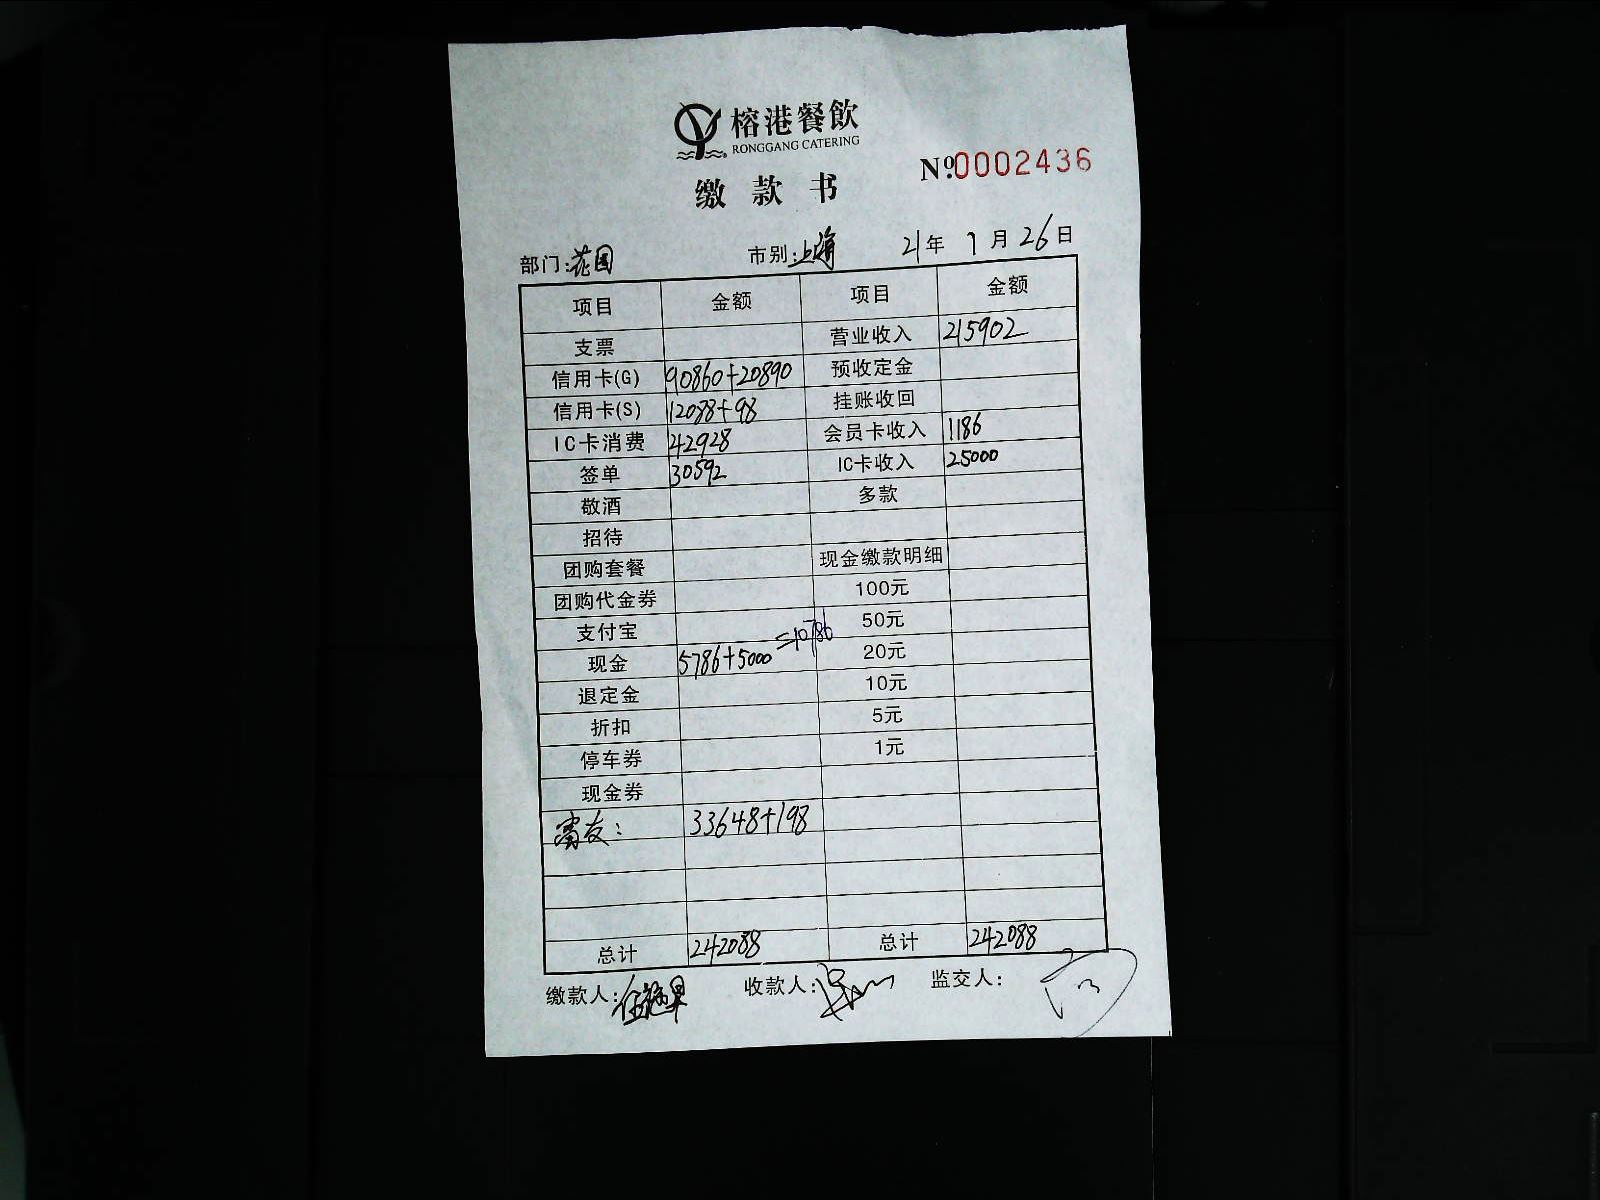 榕港餐飲
RONGGANG CATERING
缴款书
No.0002436
部门:花园 市别:上海 21年 1月26日
项目 金额 项目 金额
支票 营业收入 215902
信用卡(G) 90860+20890 预收定金
信用卡(S) 12088+98 挂账收回
IC卡消费 42928 会员卡收入 1186
签单 30592 IC卡收入 25000
敬酒 多款
招待
团购套餐 现金缴款明细
团购代金券 100元
支付宝 50元
现金 5786+5000=10786 20元
退定金 10元
折扣 5元
停车券 1元
现金券
33648+198
总计 242088 总计 242088
缴款人: 收款人: 监交人: